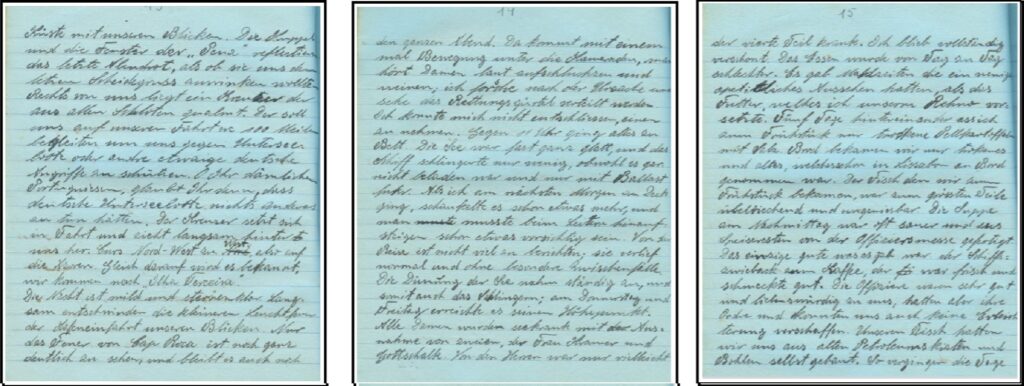 13
Küste mit unseren Blicken. Die Kuppel
und die Fenster der „Pena" reflektieren
das letzte Abendrot, als ob sie uns den
letzten Scheidegruss zuwinken wollte
Rechts von uns liegt ein Kreuzer der
aus allen Schloten qualmt. Der soll
uns auf unserer Fahrt ne 100 Meilen
begleiten um uns gegen Untersee-
boote oder andre etwaige deutsche
Angriffe zu schützen. O Ihr dämlichen
Portugiesen, glaubt Ihr denn, dass
deutsche Unterseeboote nichts anderes
zu tun hätten. Der Kreuzer setzt sich
in Fahrt und zieht langsam hinter
uns her. Kurs Nord-West zu West, also auf
die Azoren. Gleich darauf wird es bekannt,
wir kommen nach Ilha Terceira.
Die Nacht ist mild und Lang-
sam entschwinden die kleineren Leuchtfeuer
der Hafeneinfahrt unseren Blicken. Nur
das Feuer von Cap Roca ist noch ganz
deutlich zu sehen und bleibt es auch noch
14
den ganzen Abend. Da kommt mit einem
mal Bewegung unter die Kameraden, man
hört Damen laut aufschluchzen und
weinen, ich forsche nach der Ursache und
sehe das Rettungsgürtel verteilt werden
Ich konnte mich nicht entschliessen, einen
zu nehmen. Gegen Uhr ging alles zu
Bett. Die See war fast ganz glatt, und das
Schiff schlingerte nur wenig, obwohl es gar
nicht beladen war und nur mit Ballast
fuhr. Als ich am nächsten Morgen an Deck
ging, schaukelte es schon etwas mehr, und
man musste beim hinauf-
steigen schon etwas vorsichtig sein. Von der
Reise ist nicht viel zu berichten; sie verlief
normal und ohne besondere Zwischenfälle.
Die Dünung der See nahm ständig zu, und
somit auch das Schlingern; am Donnerstag und
Freitag erreichte es seinen Höhepunkt.
Alle Damen wurden seekrank mit der Aus-
nahme von zweien, der Frau und
Gottschalk. Von den Herren war nur vielleicht
15
der vierte Teil krank. Ich blieb vollständig
verschont. Das Essen wurde von Tag zu Tag
schlechter. Es gab Mahlzeiten die ein weniger
appetitliches Aussehen hatten, als das
Futter, welches ich unseren vor-
setzte. Fünf Tage hintereinander assich
zum Frühstück nur trockene Pellkartoffeln
mit Brot bekamen wir nur
und altes, welches schon in Lissabon an Bord
genommen war. Der Fisch den wir zum
Frühstück bekamen, war zum grössten Teile
übelriechend und ungeniessbar. Die Suppe
am Nachmittag war oft sauer und aus
Speiseresten von der Offiziersmesse gefertigt.
Das einzige gute was es gab war der Schiffs-
zwieback zum Kaffe, der war frisch und
schmeckte gut. Die Offiziere waren sehr gut
und liebenswürdig zu uns, hatten aber ihre
Ordre und konnten uns auch keine Erleich-
terung verschaffen. Unseren Tisch hatten
wir uns aus alten Petroleumskisten und
Bohlen selbst gebaut. So vergingen die Tage